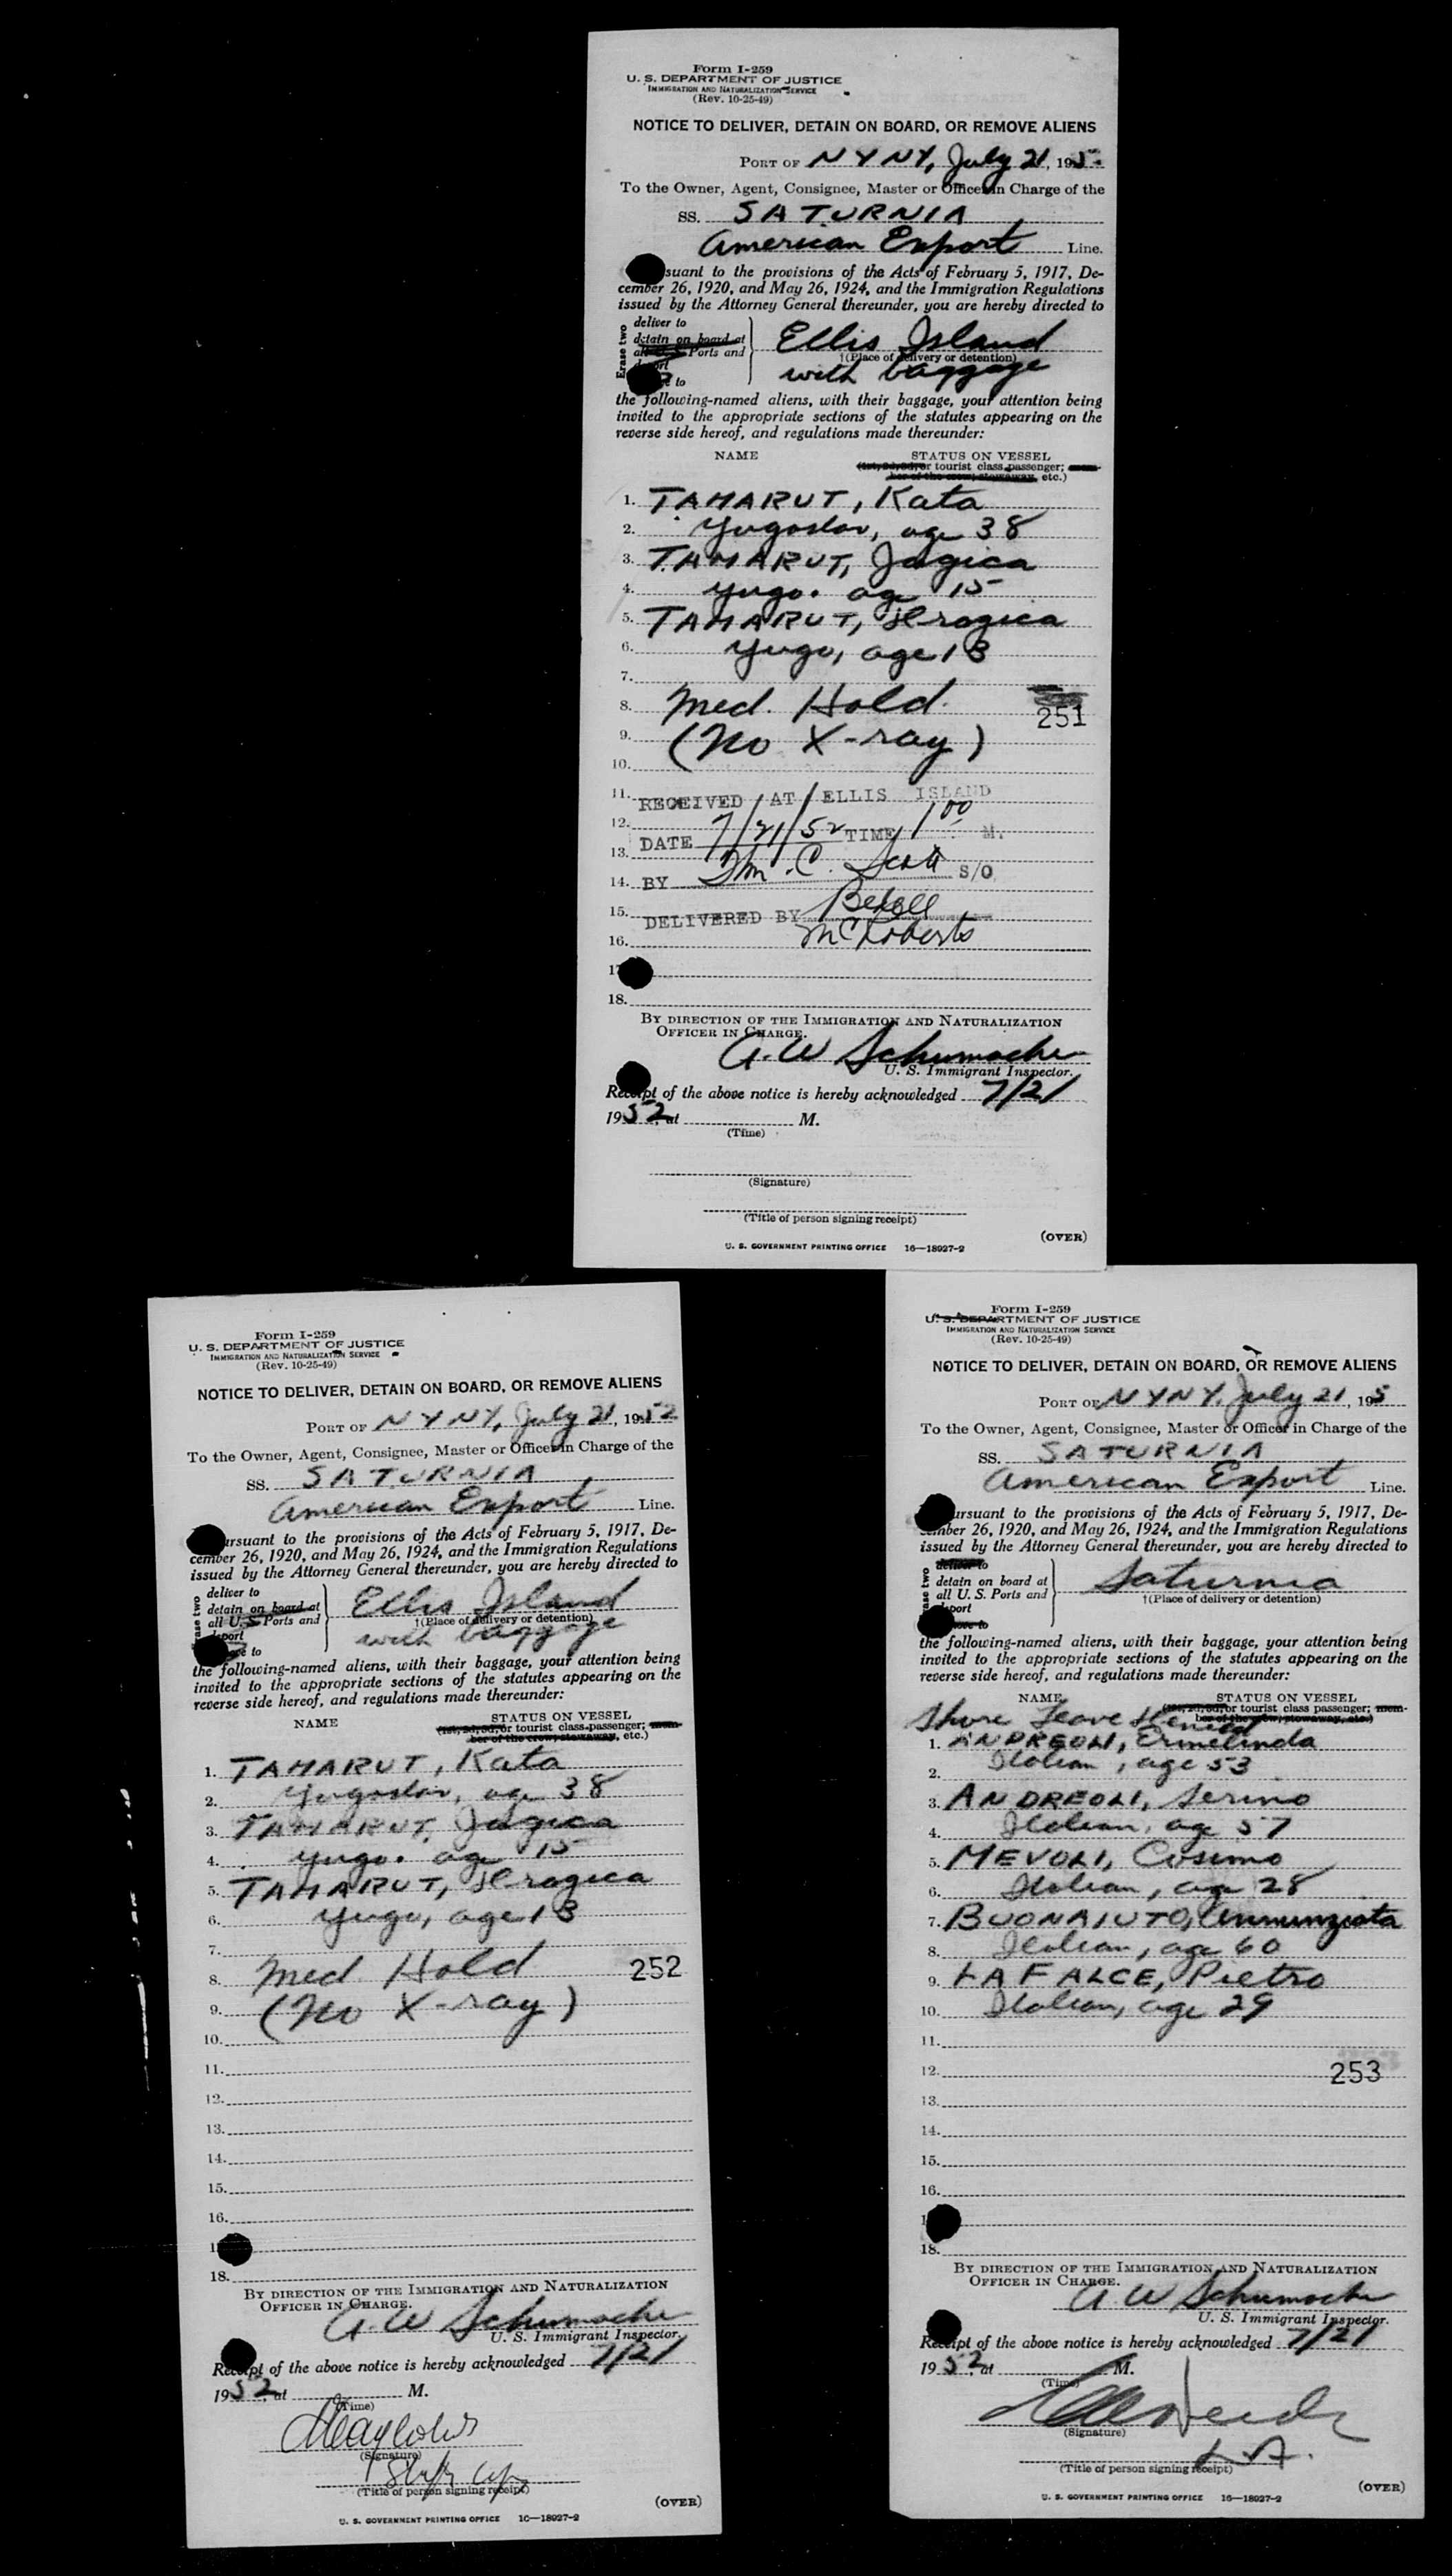 Form I-259
U. S. DEPARTMENT OF JUSTICE
IMMIGRATION AND NATURALIZATION SERVICE
(Rev. 10-25-49)
NOTICE TO DELIVER, DETAIN ON BOARD, OR REMOVE ALIENS
PORT OF NYNY, July 21, 195
To the Owner, Agent, Consignee, Master or Officer in Charge of the
SS. SATURNIA
American Export Line.
suant to the provisions of the Acts of February 5, 1917, De-
cember 26, 1920, and May 26, 1924, and the Immigration Regulations
issued by the Attorney General thereunder, you are hereby directed to
Erase two
deliver to
detain on board at
all U.S. Ports and
to
Ellis Island
†(Place of delivery or detention)
with baggage
the following-named aliens, with their baggage, your attention being
invited to the appropriate sections of the statutes appearing on the
reverse side hereof, and regulations made thereunder:
NAME STATUS ON VESSEL
(1st, 2d, 3d, or tourist class passenger; mem-
ber of the crew, stowaway, etc.)
1. TAMARUT, Kata
2. Yugoslav, age 38
3. TAMARUT, Jagica
4. yugo. age 15
5. TAMARUT, Dragica
6. yugo, age 13
7.
8. Med. Hold 251
9. (No X-ray)
10.
11. RECEIVED AT ELLIS ISLAND
12. DATE 7/21/52 TIME 1 00 M.
13.
14. BY Wm. C. Scott S/O
15. DELIVERED BY
16. McRoberts
17
18.
BY DIRECTION OF THE IMMIGRATION AND NATURALIZATION
OFFICER IN CHARGE.
A. W Schumacher
U. S. Immigrant Inspector.
Receipt of the above notice is hereby acknowledged 7/21
1952, at M.
(Time)
(Signature)
(Title of person signing receipt)
(OVER)
U. S. GOVERNMENT PRINTING OFFICE 16—18027-2
Form I-259
U. S. DEPARTMENT OF JUSTICE
IMMIGRATION AND NATURALIZATION SERVICE
(Rev. 10-25-49)
NOTICE TO DELIVER, DETAIN ON BOARD, OR REMOVE ALIENS
PORT OF NYNY, July 21, 1952
To the Owner, Agent, Consignee, Master or Officer in Charge of the
SS. SATURNIA
American Export Line.
ursuant to the provisions of the Acts of February 5, 1917, De-
cember 26, 1920, and May 26, 1924, and the Immigration Regulations
issued by the Attorney General thereunder, you are hereby directed to
ase two
deliver to
detain on board at
all U. S. Ports and
port
to
Ellis Island
†(Place of delivery or detention)
with baggage
the following-named aliens, with their baggage, your attention being
invited to the appropriate sections of the statutes appearing on the
reverse side hereof, and regulations made thereunder:
NAME STATUS ON VESSEL
(1st, 2d, 3d, or tourist class passenger; mem-
ber of the crew, stowaway, etc.)
1. TAMARUT, Kata
2. Yugoslav, age 38
3. TAMARUT, Jagica
4. yugo. age 15
5. TAMARUT, Dragica
6. yugo, age 13
7.
8. Med. Hold 252
9. (No X-ray)
10.
11.
12.
13.
14.
15.
16.
1
18.
BY DIRECTION OF THE IMMIGRATION AND NATURALIZATION
OFFICER IN CHARGE.
A. W Schumacher
U. S. Immigrant Inspector.
Receipt of the above notice is hereby acknowledged 7/21
1952, at M.
(Time)
(Signature)
(Title of person signing receipt)
(OVER)
U. S. GOVERNMENT PRINTING OFFICE 16—18027-2
Form I-259
U. S. DEPARTMENT OF JUSTICE
IMMIGRATION AND NATURALIZATION SERVICE
(Rev. 10-25-49)
NOTICE TO DELIVER, DETAIN ON BOARD, OR REMOVE ALIENS
PORT OF NYNY, July 21, 195
To the Owner, Agent, Consignee, Master or Officer in Charge of the
SS. SATURNIA
American Export Line.
ursuant to the provisions of the Acts of February 5, 1917, De-
cember 26, 1920, and May 26, 1924, and the Immigration Regulations
issued by the Attorney General thereunder, you are hereby directed to
ase two
deliver to
detain on board at
all U. S. Ports and
port
remove to
Saturnia
†(Place of delivery or detention)
the following-named aliens, with their baggage, your attention being
invited to the appropriate sections of the statutes appearing on the
reverse side hereof, and regulations made thereunder:
NAME STATUS ON VESSEL
(1st, 2d, 3d, or tourist class passenger; mem-
ber of the crew, stowaway, etc.)
Shore Leave Denied
1. ANDREOLI, Ermelinda
2. Italian, age 53
3. ANDREOLI, Serino
4. Italian, age 57
5. MEVOLI, Cosimo
6. Italian, age 28
7. BUONAIUTO, Annunziata
8. Italian, age 60
9. LA FALCE, Pietro
10. Italian, age 29
11.
12. 253
13.
14.
15.
16.
1
18.
BY DIRECTION OF THE IMMIGRATION AND NATURALIZATION
OFFICER IN CHARGE.
A. W Schumacher
U. S. Immigrant Inspector.
Receipt of the above notice is hereby acknowledged 7/21
1952, at M.
(Time)
(Signature)
(Title of person signing receipt)
(OVER)
U. S. GOVERNMENT PRINTING OFFICE 16—18027-2